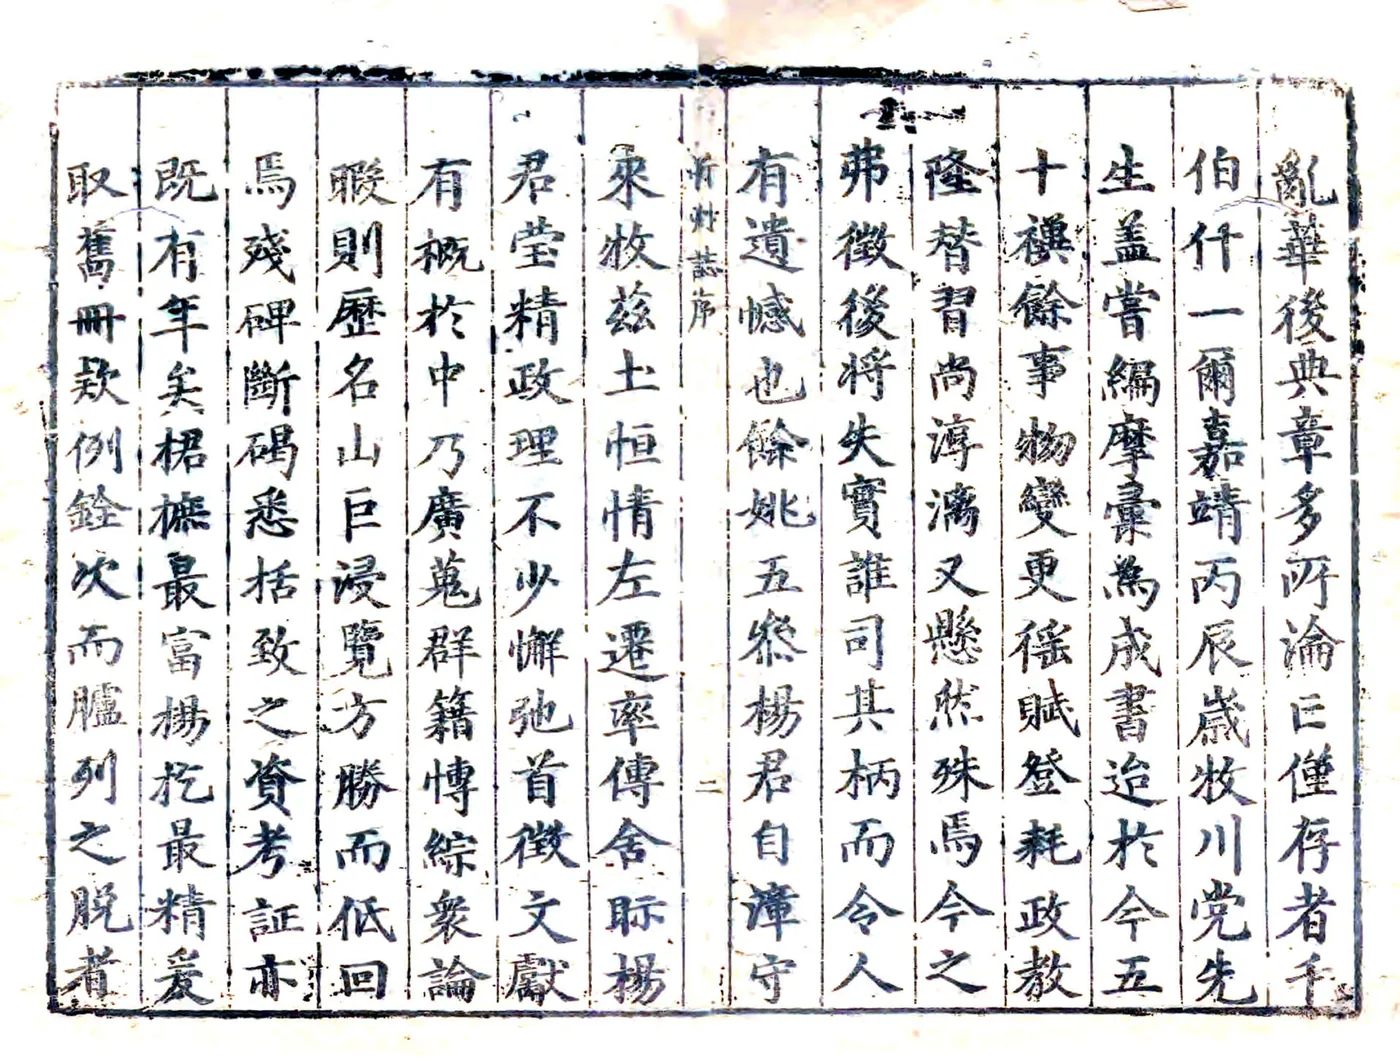 亂華後典章多所淪亡僅存者千
伯什一爾嘉靖丙辰歲牧川党先
生盖嘗編摩彙爲成書迨於今五
十禩餘事物變更徭賦登耗政教
隆替習尚淳漓又懸然殊焉今之
弗徵後將失實誰司其柄而令人
有遺憾也餘姚五𠫵楊君自漳守
忻州誌序
二
來牧兹土恒情左遷率傳舍眎楊
君瑩精政理不少懈弛首徵文獻
有概於中乃廣蒐群籍博綜衆論
暇則歷名山巨浸覽方勝而低回
焉殘碑斷碣悉括致之資考証亦
既有年矣桾摭最富楊扢最精爰
取舊冊欵例銓次而臚列之脫者